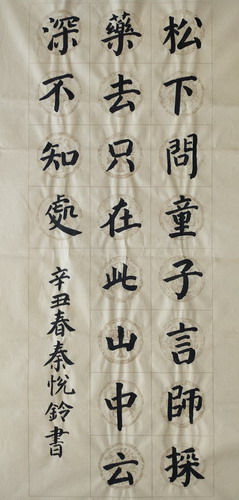 松下問童子言師採
藥去只在此山中云
深不知處
辛丑春秦悅鈴書